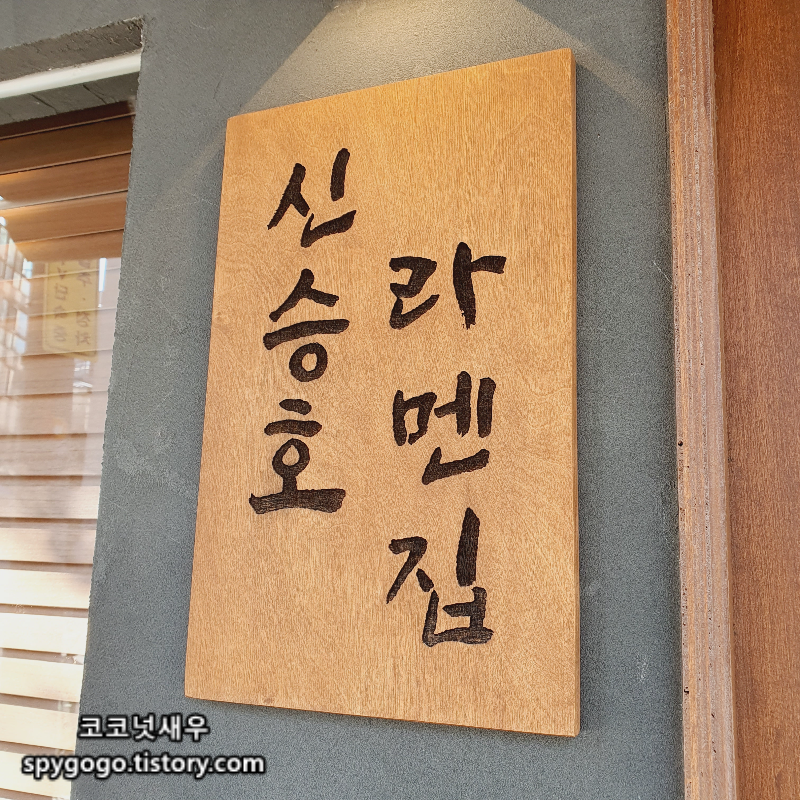 신승호
라멘집
코코넛새우
spygogo.tistory.com